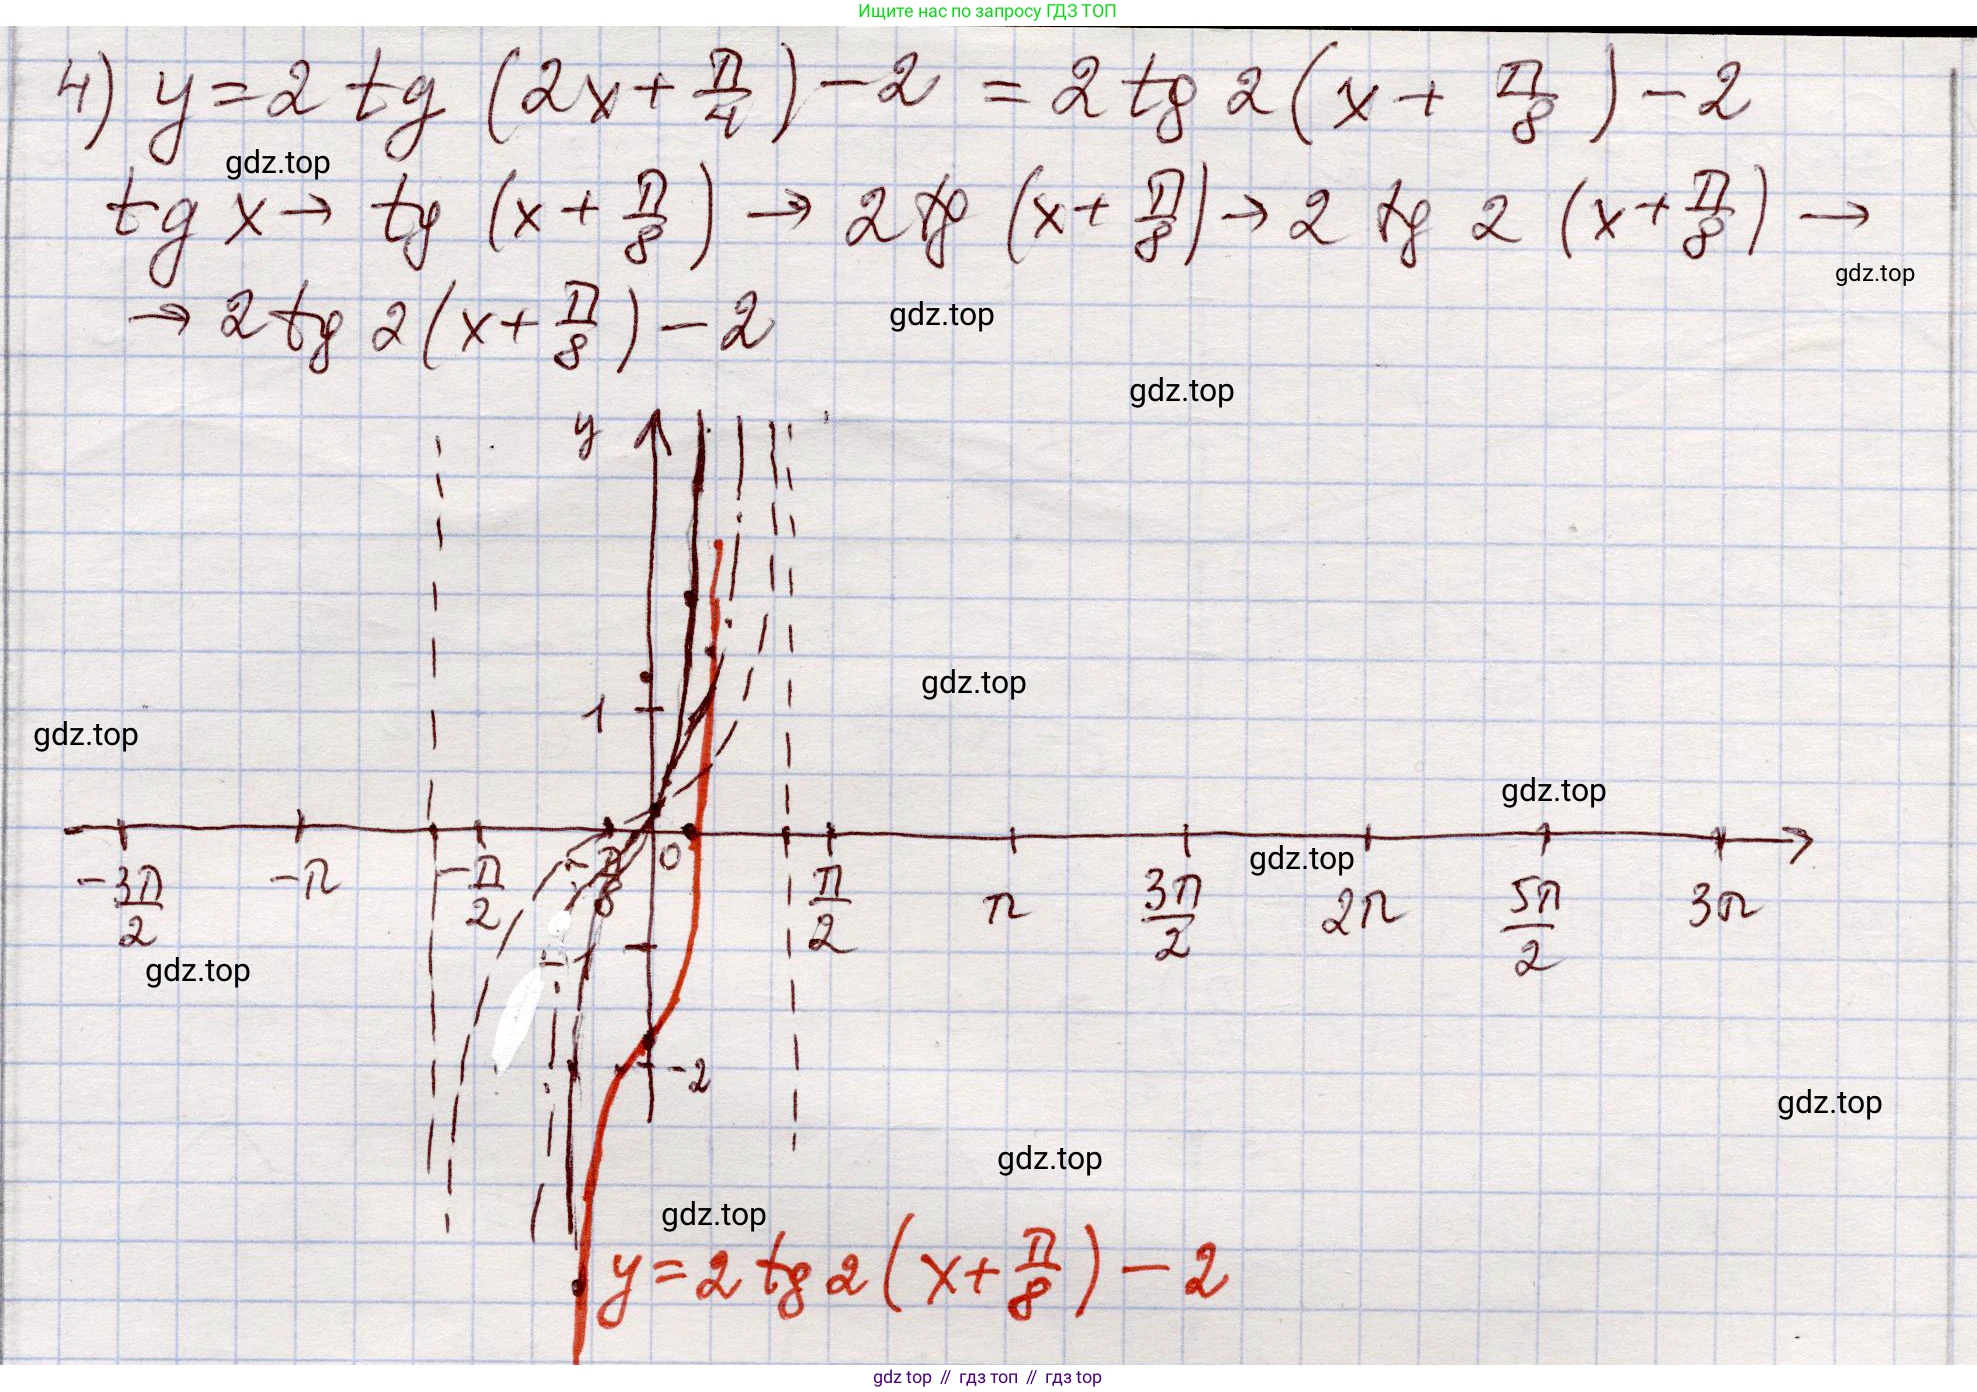 Ищите нас по запросу ГДЗ ТОП
4) y = 2 tg (2x + π/4) - 2 = 2 tg 2(x + π/8) - 2
gdz.top
tg x → tg (x + π/8) → 2 tg (x + π/8) → 2 tg 2 (x + π/8) →
gdz.top
→ 2 tg 2(x + π/8) - 2
gdz.top
gdz.top
y
gdz.top
1
gdz.top
gdz.top
-3π/2 -π -π/2 -π/8 0 π/2 π 3π/2 2π 5π/2 3π
gdz.top
-1
gdz.top
-2
gdz.top
gdz.top
gdz.top
y = 2 tg 2(x + π/8) - 2
gdz top // гдз топ // гдз top